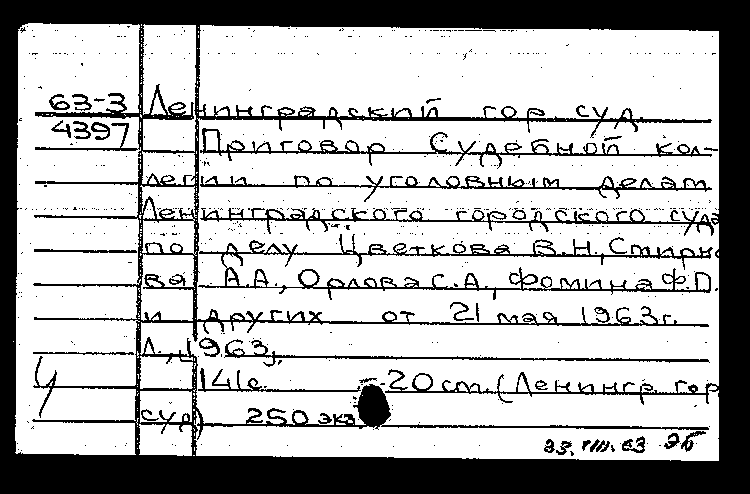 63-3 Ленинградский гор. суд.
4397 Приговор Судебной кол-
легии по уголовным делам
Ленинградского городского суда
по делу Цветкова В.Н., Смирно
ва А.А., Орлова С.А., Фомина Ф.П.
и других от 21 мая 1963г.
Л., 1963,
141с. 20см. (Ленингр. гор
суд) 250 экз
23.VIII.63 ЭБ